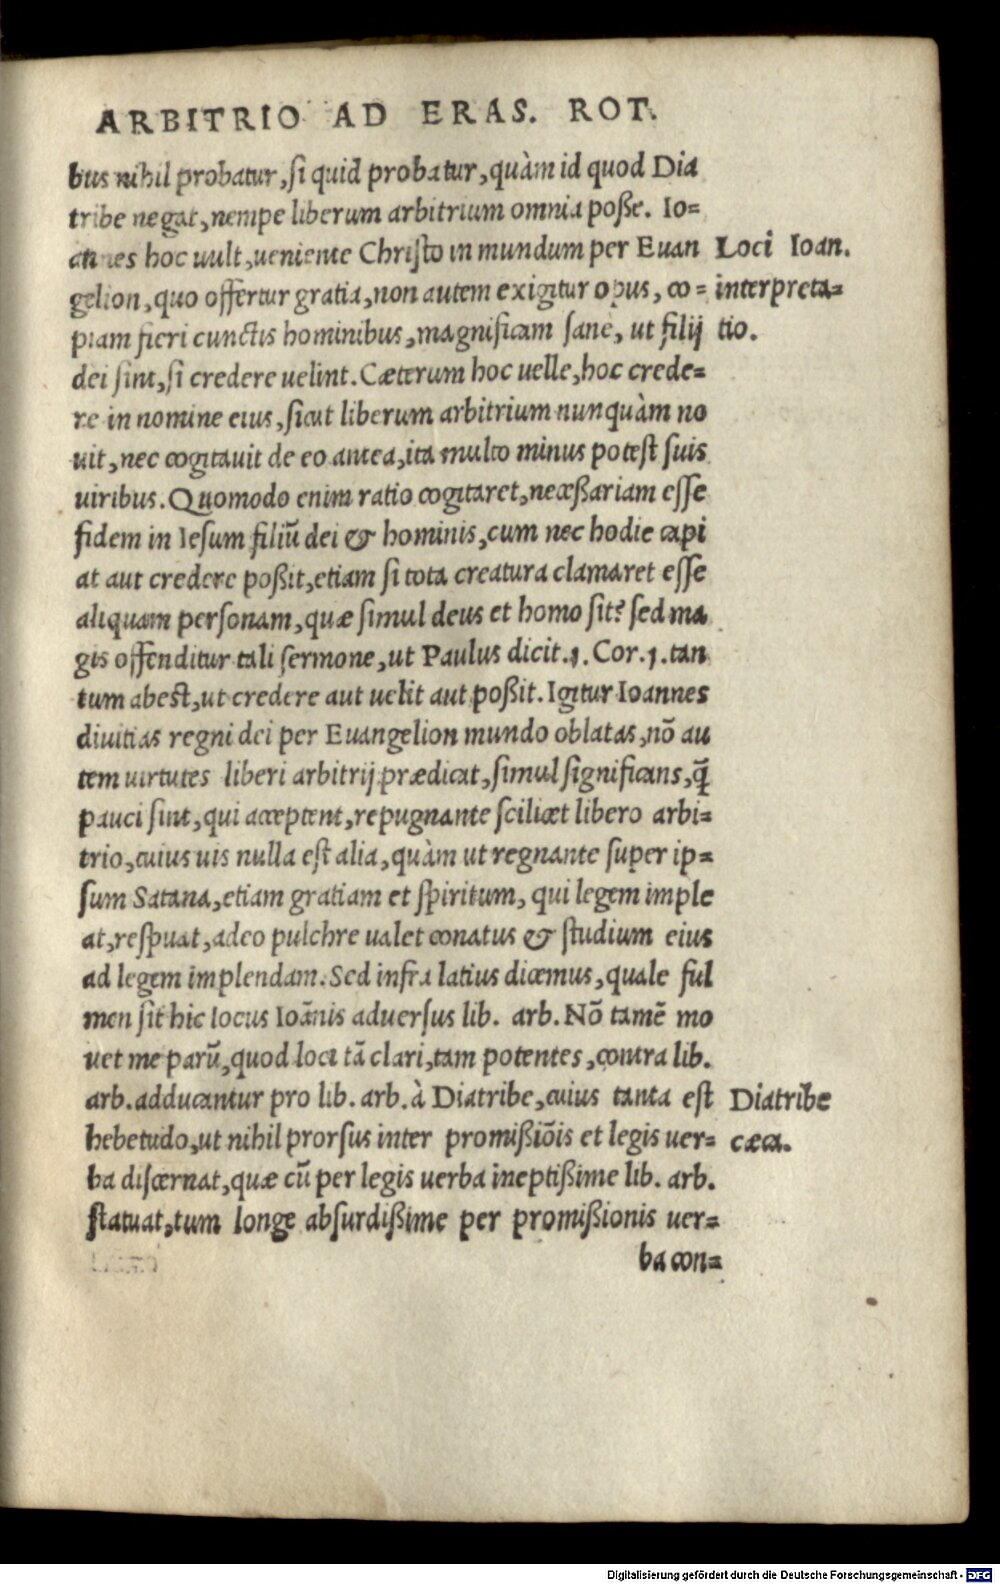 ARBITRIO AD ERAS. ROT.
bus nihil probatur, si quid probatur, quàm id quod Dia
tribe negat, nempe liberum arbitrium omnia poße. Io=
annes hoc uult, ueniente Christo in mundum per Euan
Loci Ioan.
gelion, quo offertur gratia, non autem exigitur opus, co=
interpreta=
piam fieri cunctis hominibus, magnificam sanè, ut filij
tio.
dei sint, si credere uelint. Cæterum hoc uelle, hoc crede=
re in nomine eius, sicut liberum arbitrium nunquàm no
uit, nec cogitauit de eo antea, ita multo minus potest suis
uiribus. Quomodo enim ratio cogitaret, neceßariam esse
fidem in Iesum filiū dei & hominis, cum nec hodie capi
at aut credere poßit, etiam si tota creatura clamaret esse
aliquam personam, quæ simul deus et homo sit? sed ma
gis offenditur tali sermone, ut Paulus dicit .1. Cor. 1. tan
tum abest, ut credere aut uelit aut poßit. Igitur Ioannes
diuitias regni dei per Euangelion mundo oblatas, nō au
tem uirtutes liberi arbitrij prædicat, simul significans, q̄
pauci sint, qui acceptent, repugnante scilicet libero arbi=
trio, cuius uis nulla est alia, quàm ut regnante super ip=
sum Satana, etiam gratiam et spiritum, qui legem imple
at, respuat, adeo pulchre ualet conatus & studium eius
ad legem implendam. Sed infra latius dicemus, quale ful
men sit hic locus Ioānis aduersus lib. arb. Nō tamē mo
uet me parū, quod loci tā clari, tam potentes, contra lib.
arb. adducantur pro lib. arb. à Diatribe, cuius tanta est
Diatribe
hebetudo, ut nihil prorsus inter promißiōis et legis uer=
cæca.
ba discernat, quæ cū per legis uerba ineptißime lib. arb.
statuat, tum longe absurdißime per promißionis uer=
ba con=
Digitalisierung gefördert durch die Deutsche Forschungsgemeinschaft - DFG